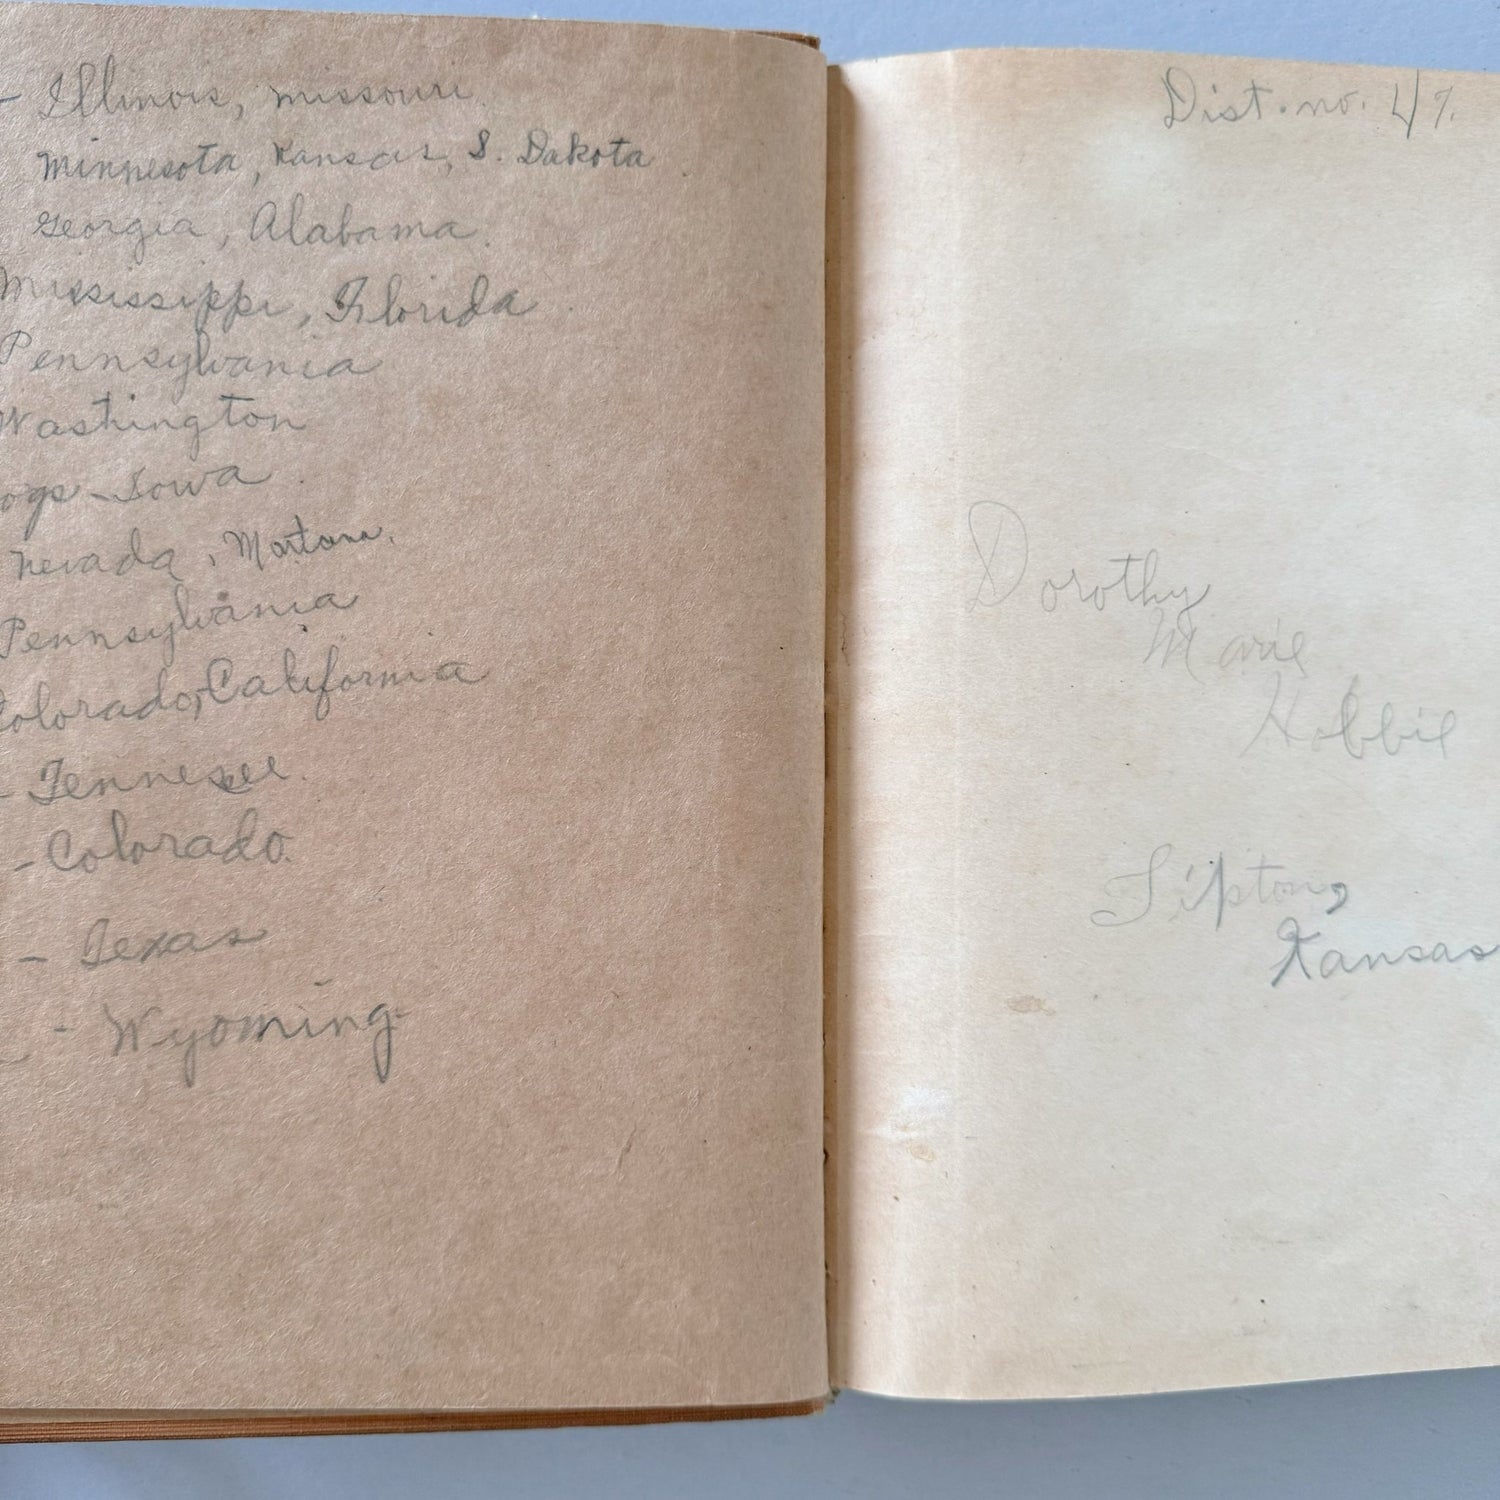 - Illinois, Missouri.
Minnesota, Kansas, S. Dakota
Georgia, Alabama.
Mississippi, Florida
Pennsylvania
Washington
ogs - Iowa
Nevada, Montana.
Pennsylvania
Colorado, California
- Tennesee.
- Colorado.
- Texas
- Wyoming.
Dist. no. 47.
Dorothy
Marie
Hobbie
Tipton,
Kansas